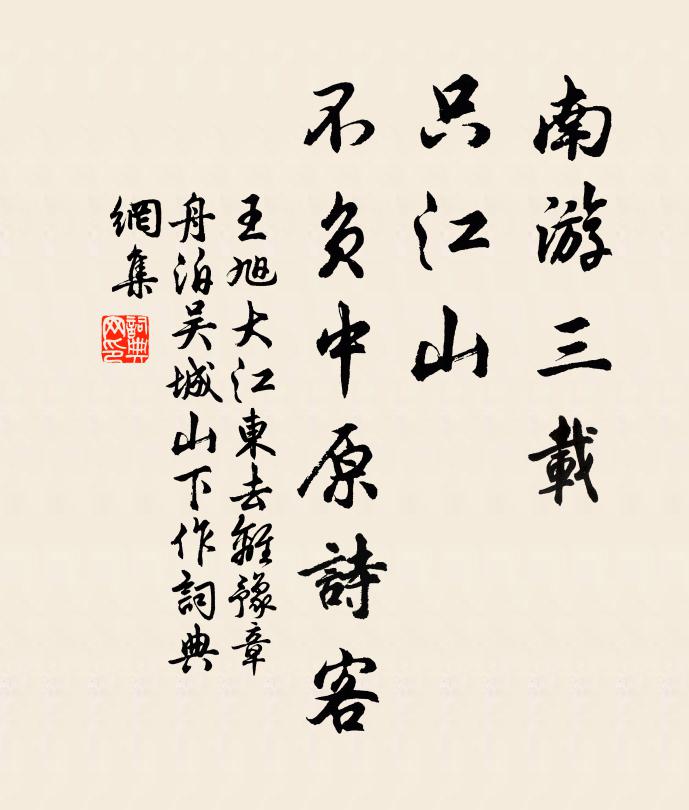 南游三載
只江山
不負中原詩客
王旭大江東去離豫章
舟泊吴城山下作詞典
網集
詞典網印